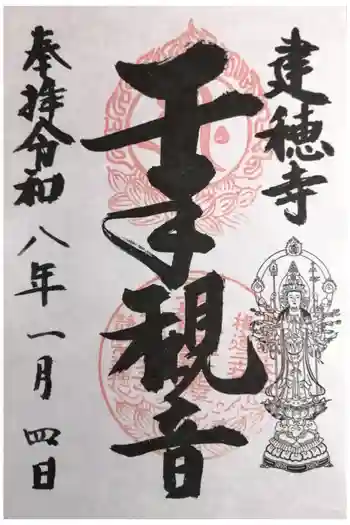 建穂寺
千手観音
奉拝令和八年一月四日